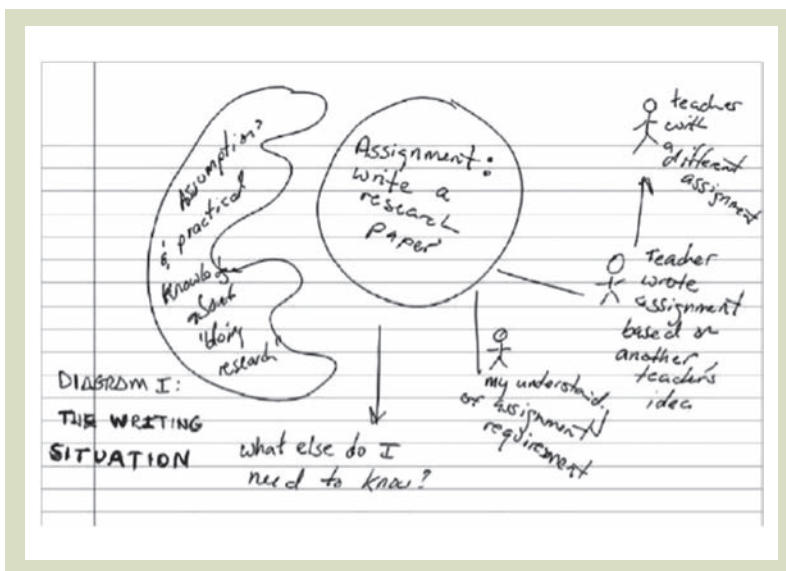 Assumption?
& practical
Knowledge
about
"doing
research"
Assignment:
write a
research
paper
teacher
with
a
different
assignment
Teacher
wrote
assignment
based on
another
teacher's
idea
my understand.
of assignment
requirement
what else do I
need to know?
DIAGRAM I:
THE WRITING
SITUATION